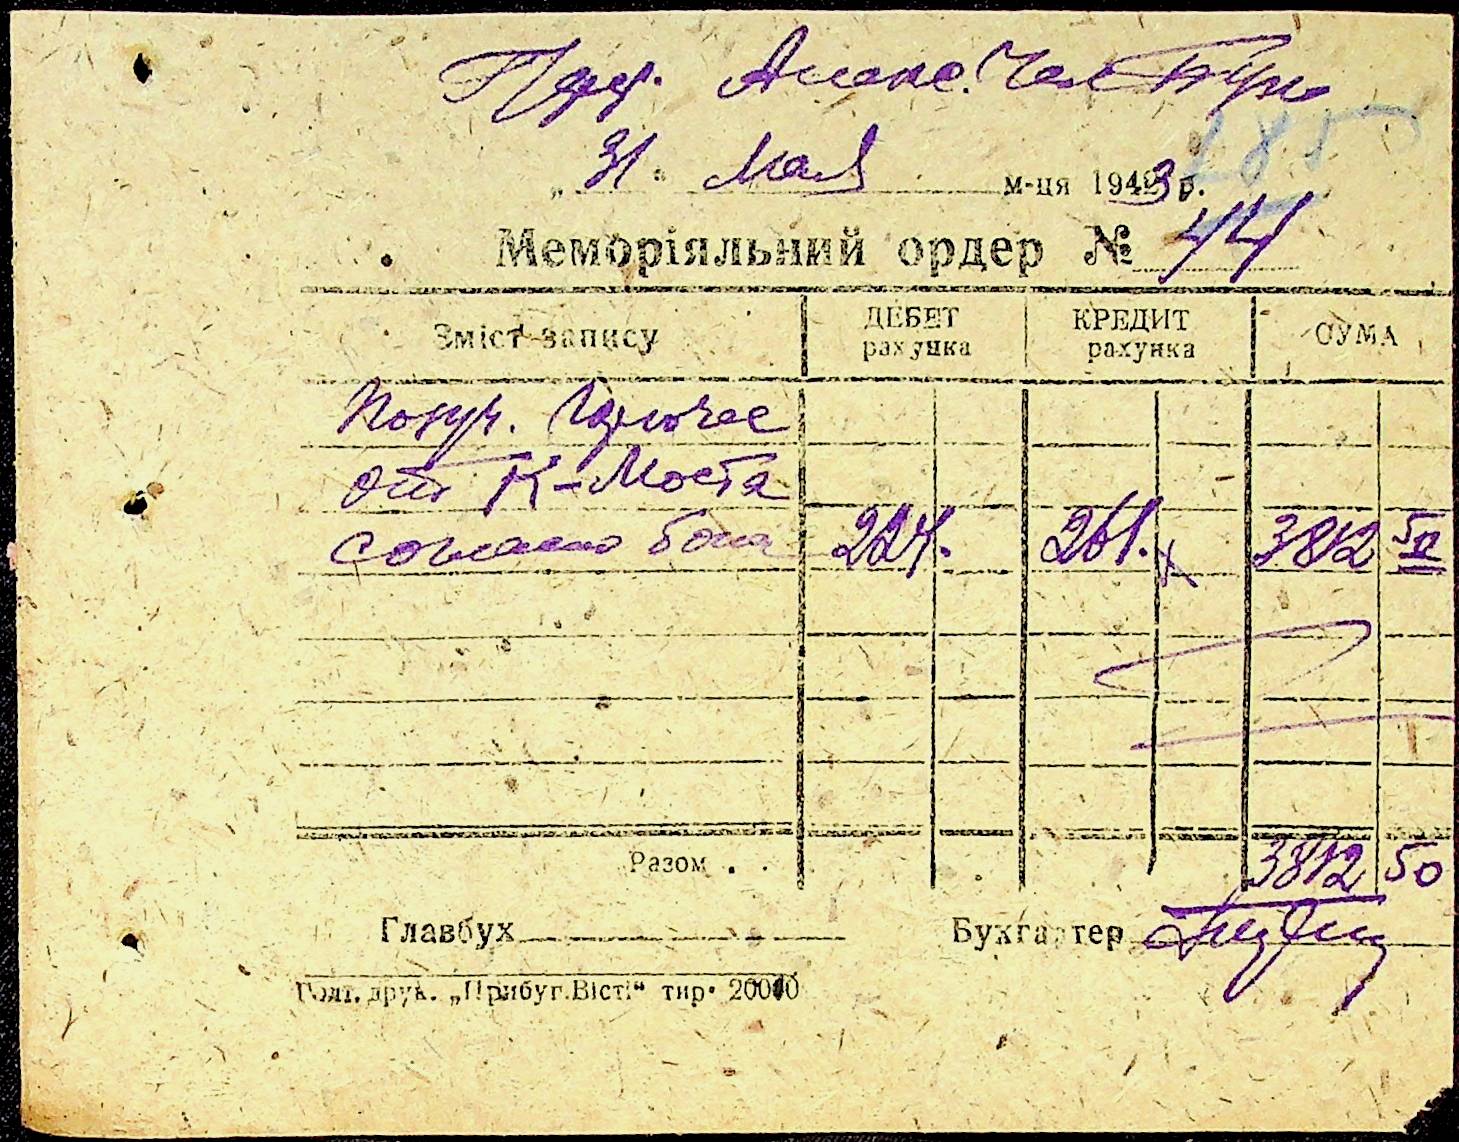 285
„ 31 " Мая м-ця 1943 р.
Меморіяльний ордер № 44
Зміст запису ДЕБЕТ рахунка КРЕДИТ рахунка СУМА
Получ.
от К-Моста
согласно 224. 261. 3812 50
Разом . . 3812 50
Главбух Бухгалтер
Голт. друк. „Прибуг.Вісті“ тир. 20000